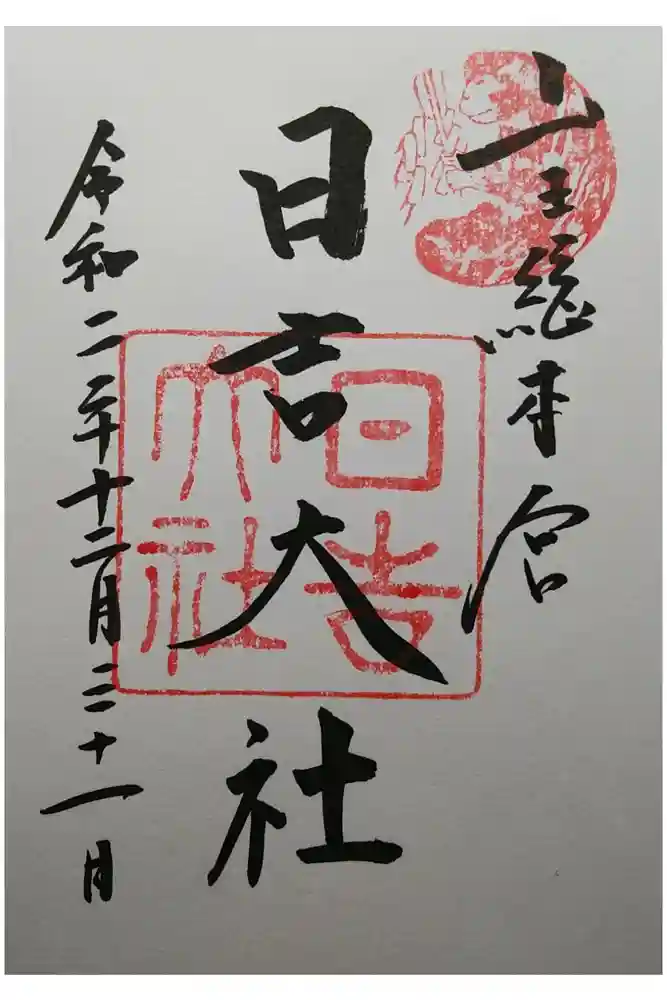 山王総本宮
日吉大社
令和二年十二月三十一日
日吉
大社